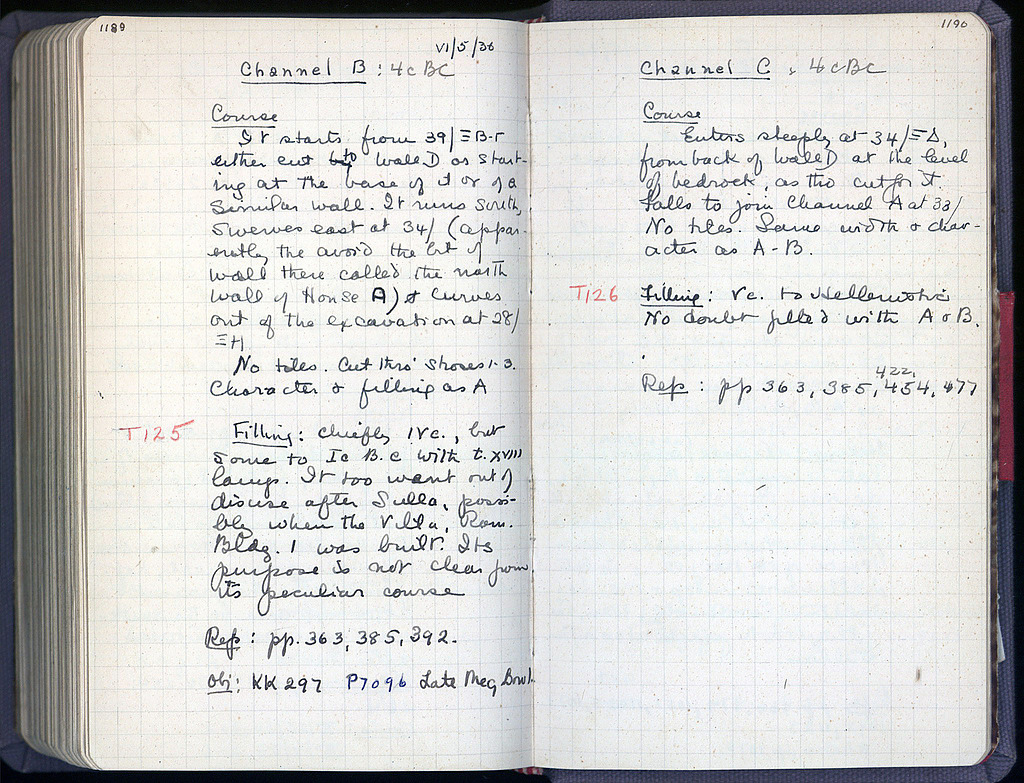 1189
VI/5/36
Channel B : 4c BC
Course
It starts from 39/ΞB-Γ
either cut into wall D or start-
ing at the base of it or of a
similar wall. It runs south,
swerves east at 34/ (appar-
ently the avoid the bit of
wall there called the north
wall of House A) & curves
out of the excavation at 28/
ΞH
No tiles. Cut thro' Stoses 1-3.
Character & filling as A
T125
Filling: chiefly IVc., but
some to Ic B.C with t. XVIII
lamp. It too went out of
disuse after Sulla, possi-
bly when the Villa, Rom.
Bldg. I was built. Its
purpose is not clear from
its peculiar course
Refs : pp. 363, 385, 392.
Obj: KK 297 P7096 Late Meg Bowl.
1190
Channel C , 4cBC
Course
Enters steeply at 34/ΞΔ,
from back of wall D at the level
of bedrock, as tho cut for it.
Falls to join Channel A at 33/
No tiles. Same width & char-
acter as A-B.
T126
Filling: Vc. to Hellenistic
No doubt filled with A & B.
422,
Refs : pp 363, 385, 454, 477